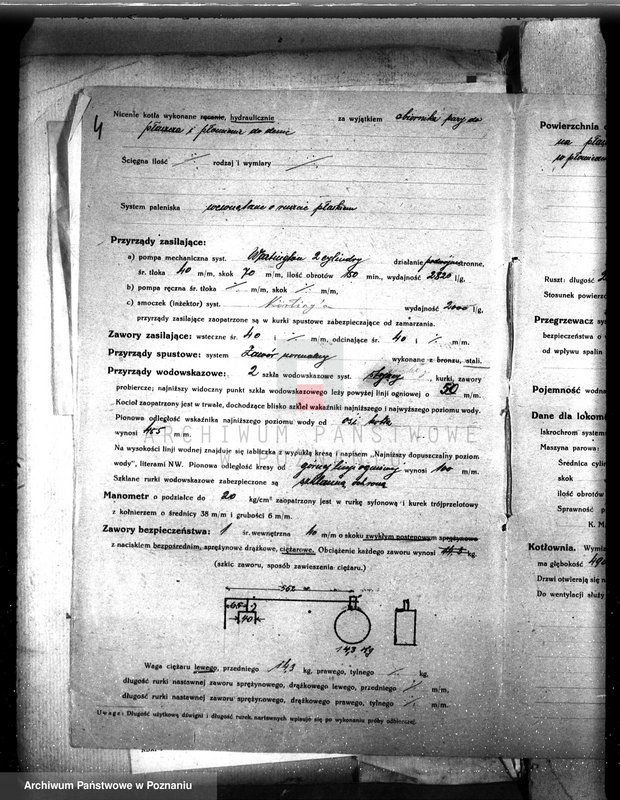 4
Nicenie kotła wykonane ręcznie, hydraulicznie za wyjątkiem zbiornika pary do
płaszcza i płomienic do denic
Ścięgna ilość rodzaj i wymiary
System paleniska wewnątrzne o ruszcie płaskim
Przyrządy zasilające:
a) pompa mechaniczna syst. Worthington 2 cylindry działanie podwójne stronne,
śr. tłoka 40 m/m, skok 70 m/m, ilość obrotów 150 min., wydajność 2820 l/g,
b) pompa ręczna śr. tłoka m/m, skok m/m,
c) smoczek (inżektor) syst. Körting'a wydajność 2000 l/g,
przyrządy zasilające zaopatrzone są w kurki spustowe zabezpieczające od zamarzania.
Zawory zasilające: wsteczne śr. 40 i m/m, odcinające śr. 40 i m/m.
Przyrządy spustowe: system Zawór normalny wykonane z bronzu, stali.
Przyrządy wodowskazowe: 2 szkła wodowskazowe syst. , kurki, zawory
probiercze; najniższy widoczny punkt szkła wodowskazowego leży powyżej linji ogniowej o 50 m/m.
Kocioł zaopatrzony jest w trwałe, dochodzące blisko szkieł wskaźniki najniższego i najwyższego poziomu wody.
Pionowa odległość wskaźnika najniższego poziomu wody od osi kotła
wynosi 465 m/m.
Na wysokości linji wodnej znajduje się tabliczka z wypukłą kresą i napisem „Najniższy dopuszczalny poziom
wody", literami NW. Pionowa odległość kresy od górnej linji ogniowej wynosi 100 m/m.
Szklane rurki wodowskazowe zabezpieczone są szklanną ochroną
Manometr o podziałce do 20 kg/cm² zaopatrzony jest w rurkę syfonową i kurek trójprzelotowy
z kołnierzem o średnicy 38 m/m i grubości 6 m/m.
Zawory bezpieczeństwa: 1 śr. wewnętrzna 40 m/m o skoku zwykłym postępowym sprężynowe
z naciskiem bezpośrednim, sprężynowo drążkowe, ciężarowe. Obciążenie każdego zaworu wynosi kg.
(szkic zaworu, sposób zawieszenia ciężaru.)
562
65
40
14,3 kg
Waga ciężaru lewego, przedniego 14,3 kg, prawego, tylnego kg,
długość rurki nastawnej zaworu sprężynowego, drążkowego lewego, przedniego m/m,
długość rurki nastawnej zaworu sprężynowego, drążkowego prawego, tylnego m/m.
Uwaga: Długość użytkową dźwigni i długość rurek nastawnych wpisuje się po wykonaniu próby odbiorczej.
Powierzchnia
na
w płomien
Ruszt: długość
Stosunek powierz
Przegrzewacz sy
bezpieczeństwa o
od wpływu spalin
Pojemność wodna
Dane dla lokomo
Iskrochron system
Maszyna parowa:
Średnica cyl
skok
ilość obrotów
Sprawność p
K. M
Kotłownia. Wymia
ma głębokość 490
Drzwi otwierają się na
Do wentylacji służy
ARCHIWUM PAŃSTWOWE
W POZNANIU
Archiwum Państwowe w Poznaniu